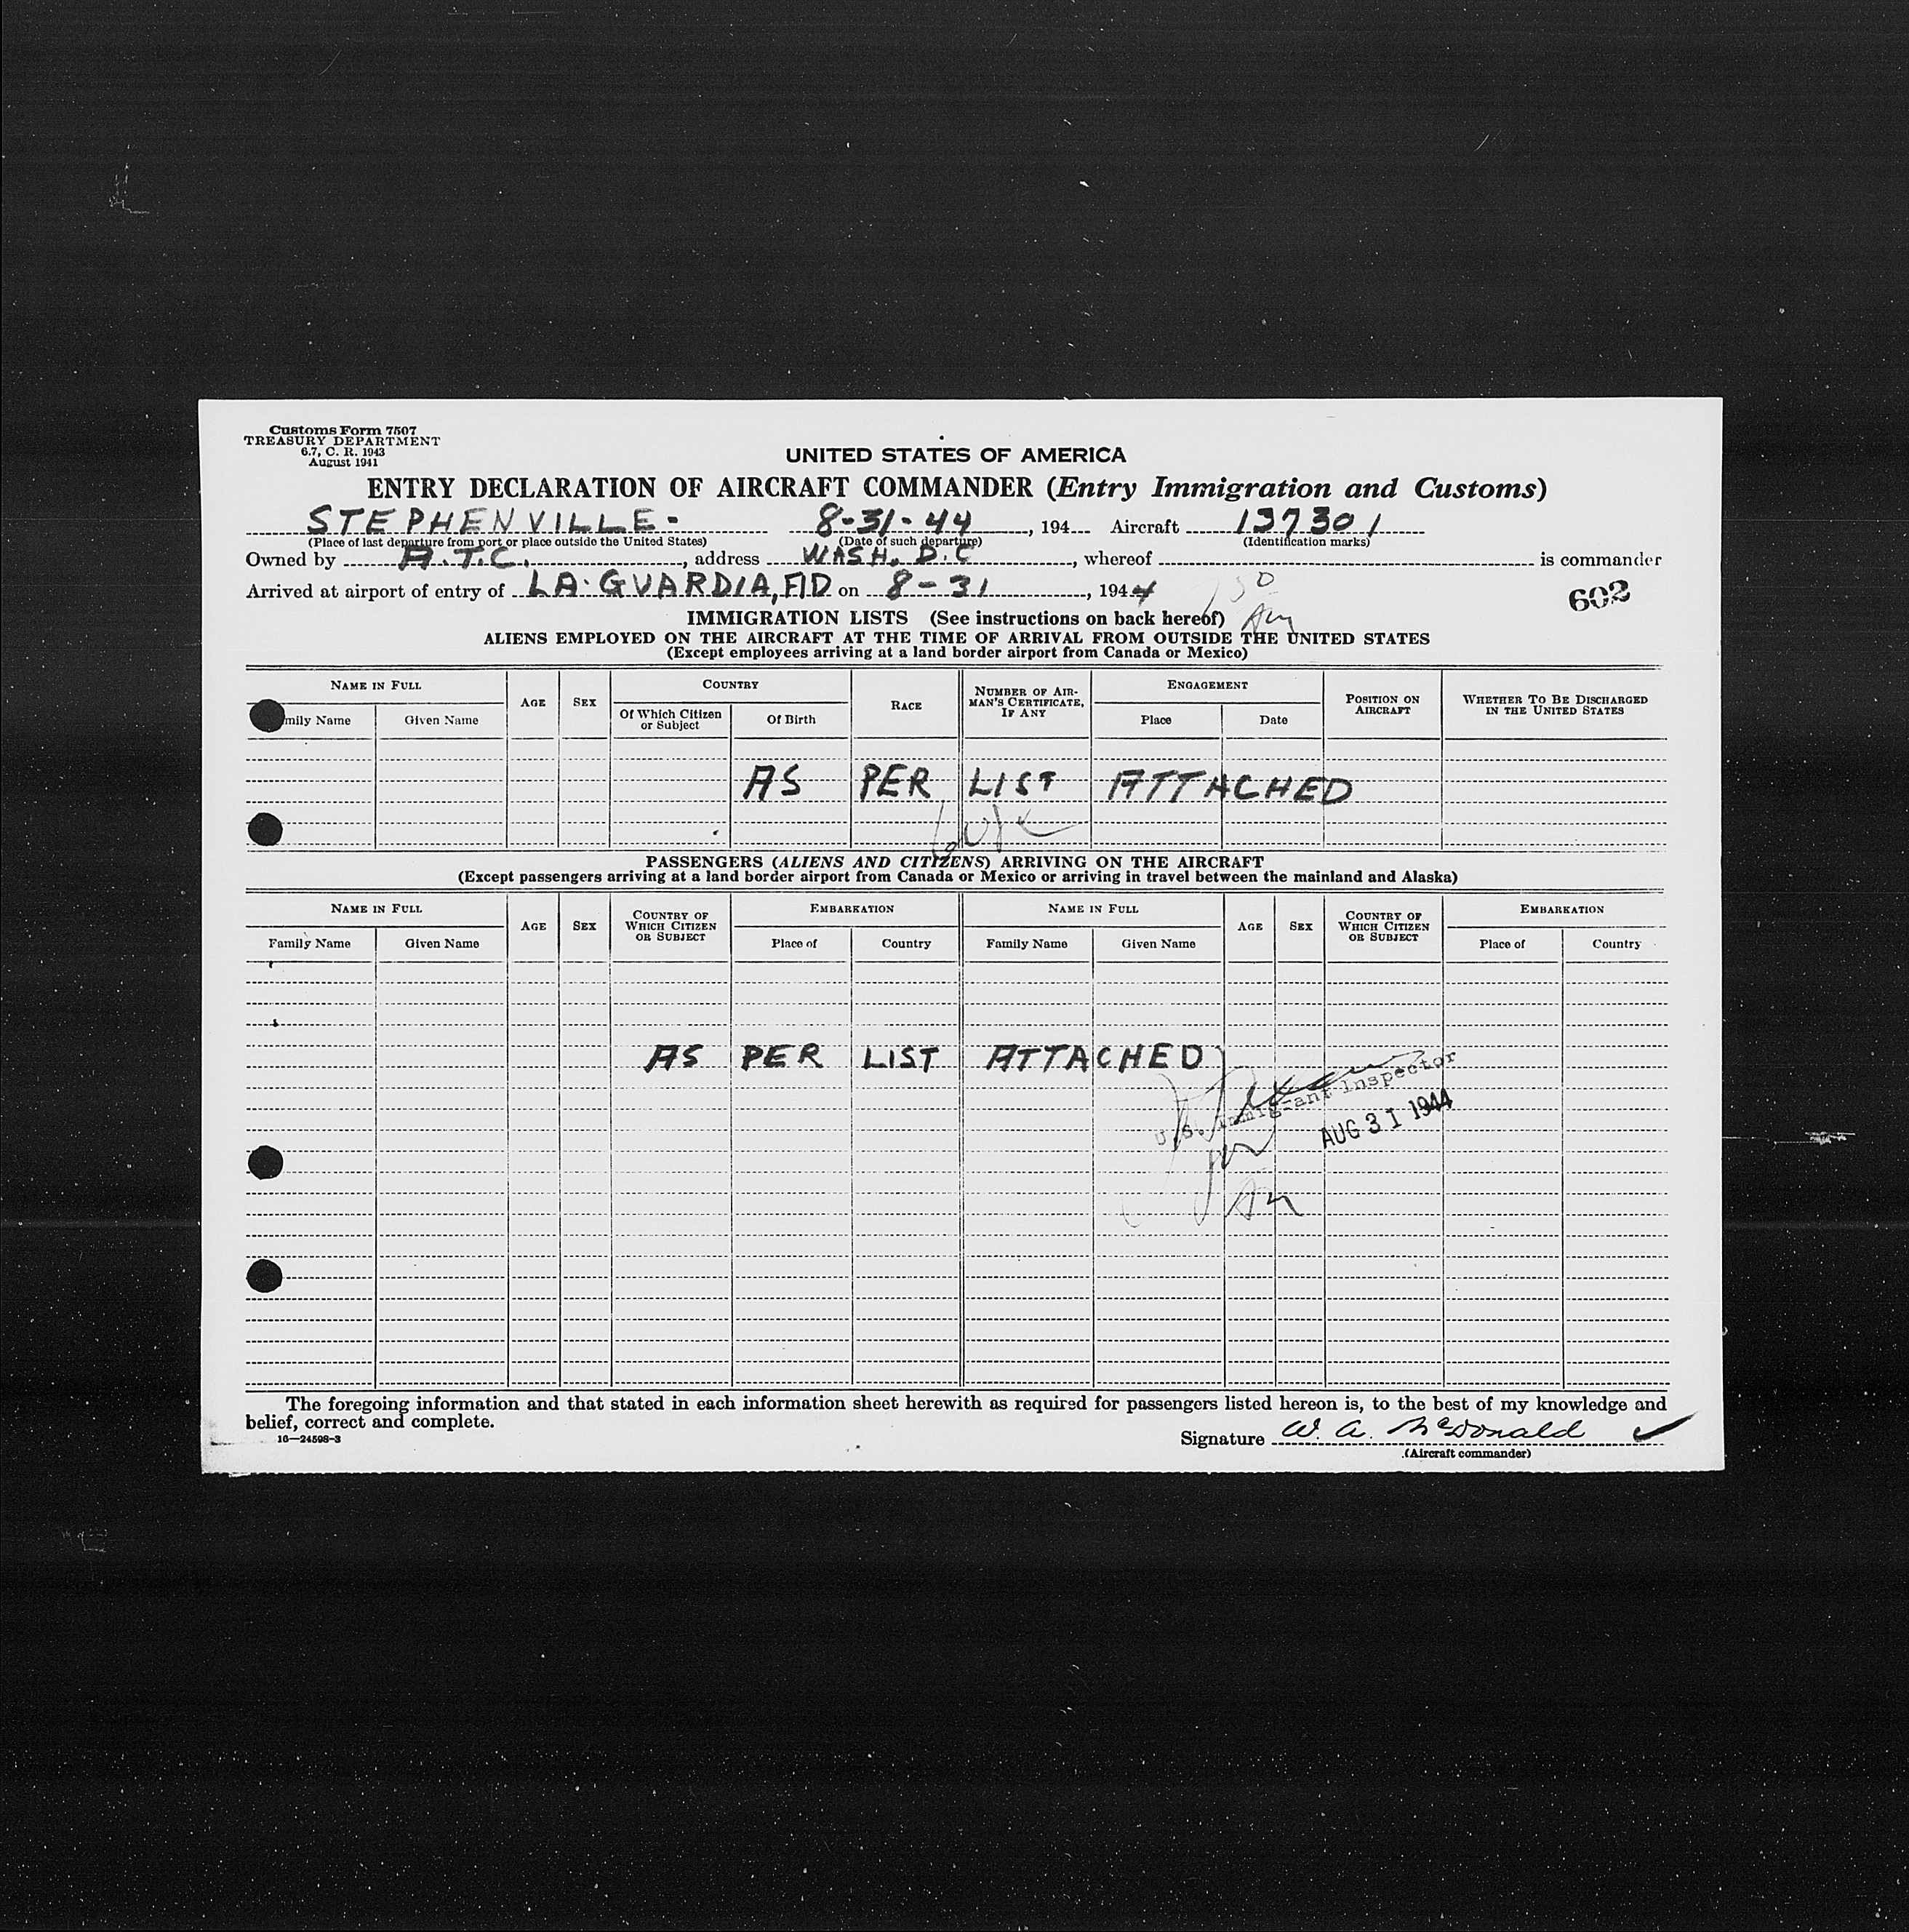 Customs Form 7507
TREASURY DEPARTMENT
6.7, C. R. 1943
August 1941
UNITED STATES OF AMERICA
ENTRY DECLARATION OF AIRCRAFT COMMANDER (Entry Immigration and Customs)
STEPHENVILLE- 8-31-44, 194 Aircraft 137301
(Place of last departure from port or place outside the United States) (Date of such departure) (Identification marks)
Owned by A.T.C., address WASH. D.C, whereof is commander
Arrived at airport of entry of LA·GUARDIA, FLD on 8-31, 1944
602
IMMIGRATION LISTS (See instructions on back hereof)
ALIENS EMPLOYED ON THE AIRCRAFT AT THE TIME OF ARRIVAL FROM OUTSIDE THE UNITED STATES
(Except employees arriving at a land border airport from Canada or Mexico)
NAME IN FULL AGE SEX COUNTRY RACE NUMBER OF AIRMAN'S CERTIFICATE, IF ANY ENGAGEMENT POSITION ON AIRCRAFT WHETHER TO BE DISCHARGED IN THE UNITED STATES
mily Name Given Name Of Which Citizen or Subject Of Birth Place Date
AS PER LIST ATTACHED
PASSENGERS (ALIENS AND CITIZENS) ARRIVING ON THE AIRCRAFT
(Except passengers arriving at a land border airport from Canada or Mexico or arriving in travel between the mainland and Alaska)
NAME IN FULL AGE SEX COUNTRY OF WHICH CITIZEN OR SUBJECT EMBARKATION NAME IN FULL AGE SEX COUNTRY OF WHICH CITIZEN OR SUBJECT EMBARKATION
Family Name Given Name Place of Country Family Name Given Name Place of Country
AS PER LIST ATTACHED
U.S. Immigrant Inspector
AUG 31 1944
The foregoing information and that stated in each information sheet herewith as required for passengers listed hereon is, to the best of my knowledge and
belief, correct and complete.
16—24598-3
Signature W. A. McDonald
(Aircraft commander)